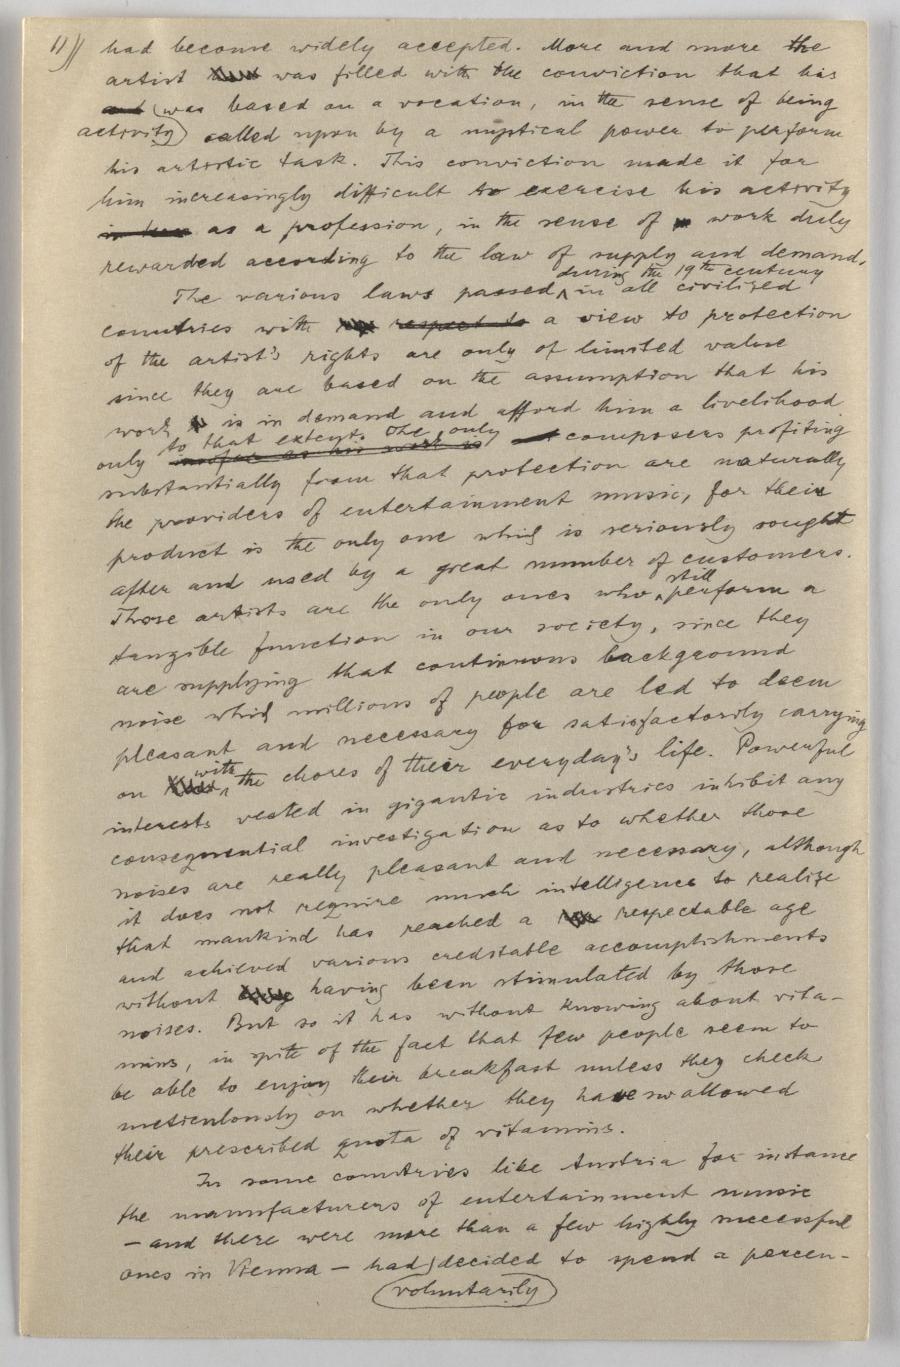 11)) had become widely accepted. More and more the
artist was filled with the conviction that his
activity was based on a vocation, in the sense of being
called upon by a mystical power to perform
his artistic task. This conviction made it for
him increasingly difficult to exercise his activity
as a profession, in the sense of work duly
rewarded according to the law of supply and demand.
The various laws passed during the 19th century in all civilized
countries with respect to a view to protection
of the artist's rights are only of limited value
since they are based on the assumption that his
work is in demand and afford him a livelihood
only to that extent. The only insofar as his work is composers profiting
substantially from that protection are naturally
the providers of entertainment music, for their
product is the only one which is seriously sought
after and used by a great number of customers.
Those artists are the only ones who still perform a
tangible function in our society, since they
are supplying that continuous background
noise which millions of people are led to deem
pleasant and necessary for satisfactorily carrying
on with the chores of their everyday's life. Powerful
interests vested in gigantic industries inhibit any
consequential investigation as to whether those
noises are really pleasant and necessary, although
it does not require much intelligence to realize
that mankind has reached a respectable age
and achieved various creditable accomplishments
without having been stimulated by those
noises. But so it has without knowing about vita-
mins, in spite of the fact that few people seem to
be able to enjoy their breakfast unless they check
meticulously on whether they have swallowed
their prescribed quota of vitamins.
In some countries like Austria for instance
the manufacturers of entertainment music
— and there were more than a few highly successful
ones in Vienna — had voluntarily decided to spend a percen-